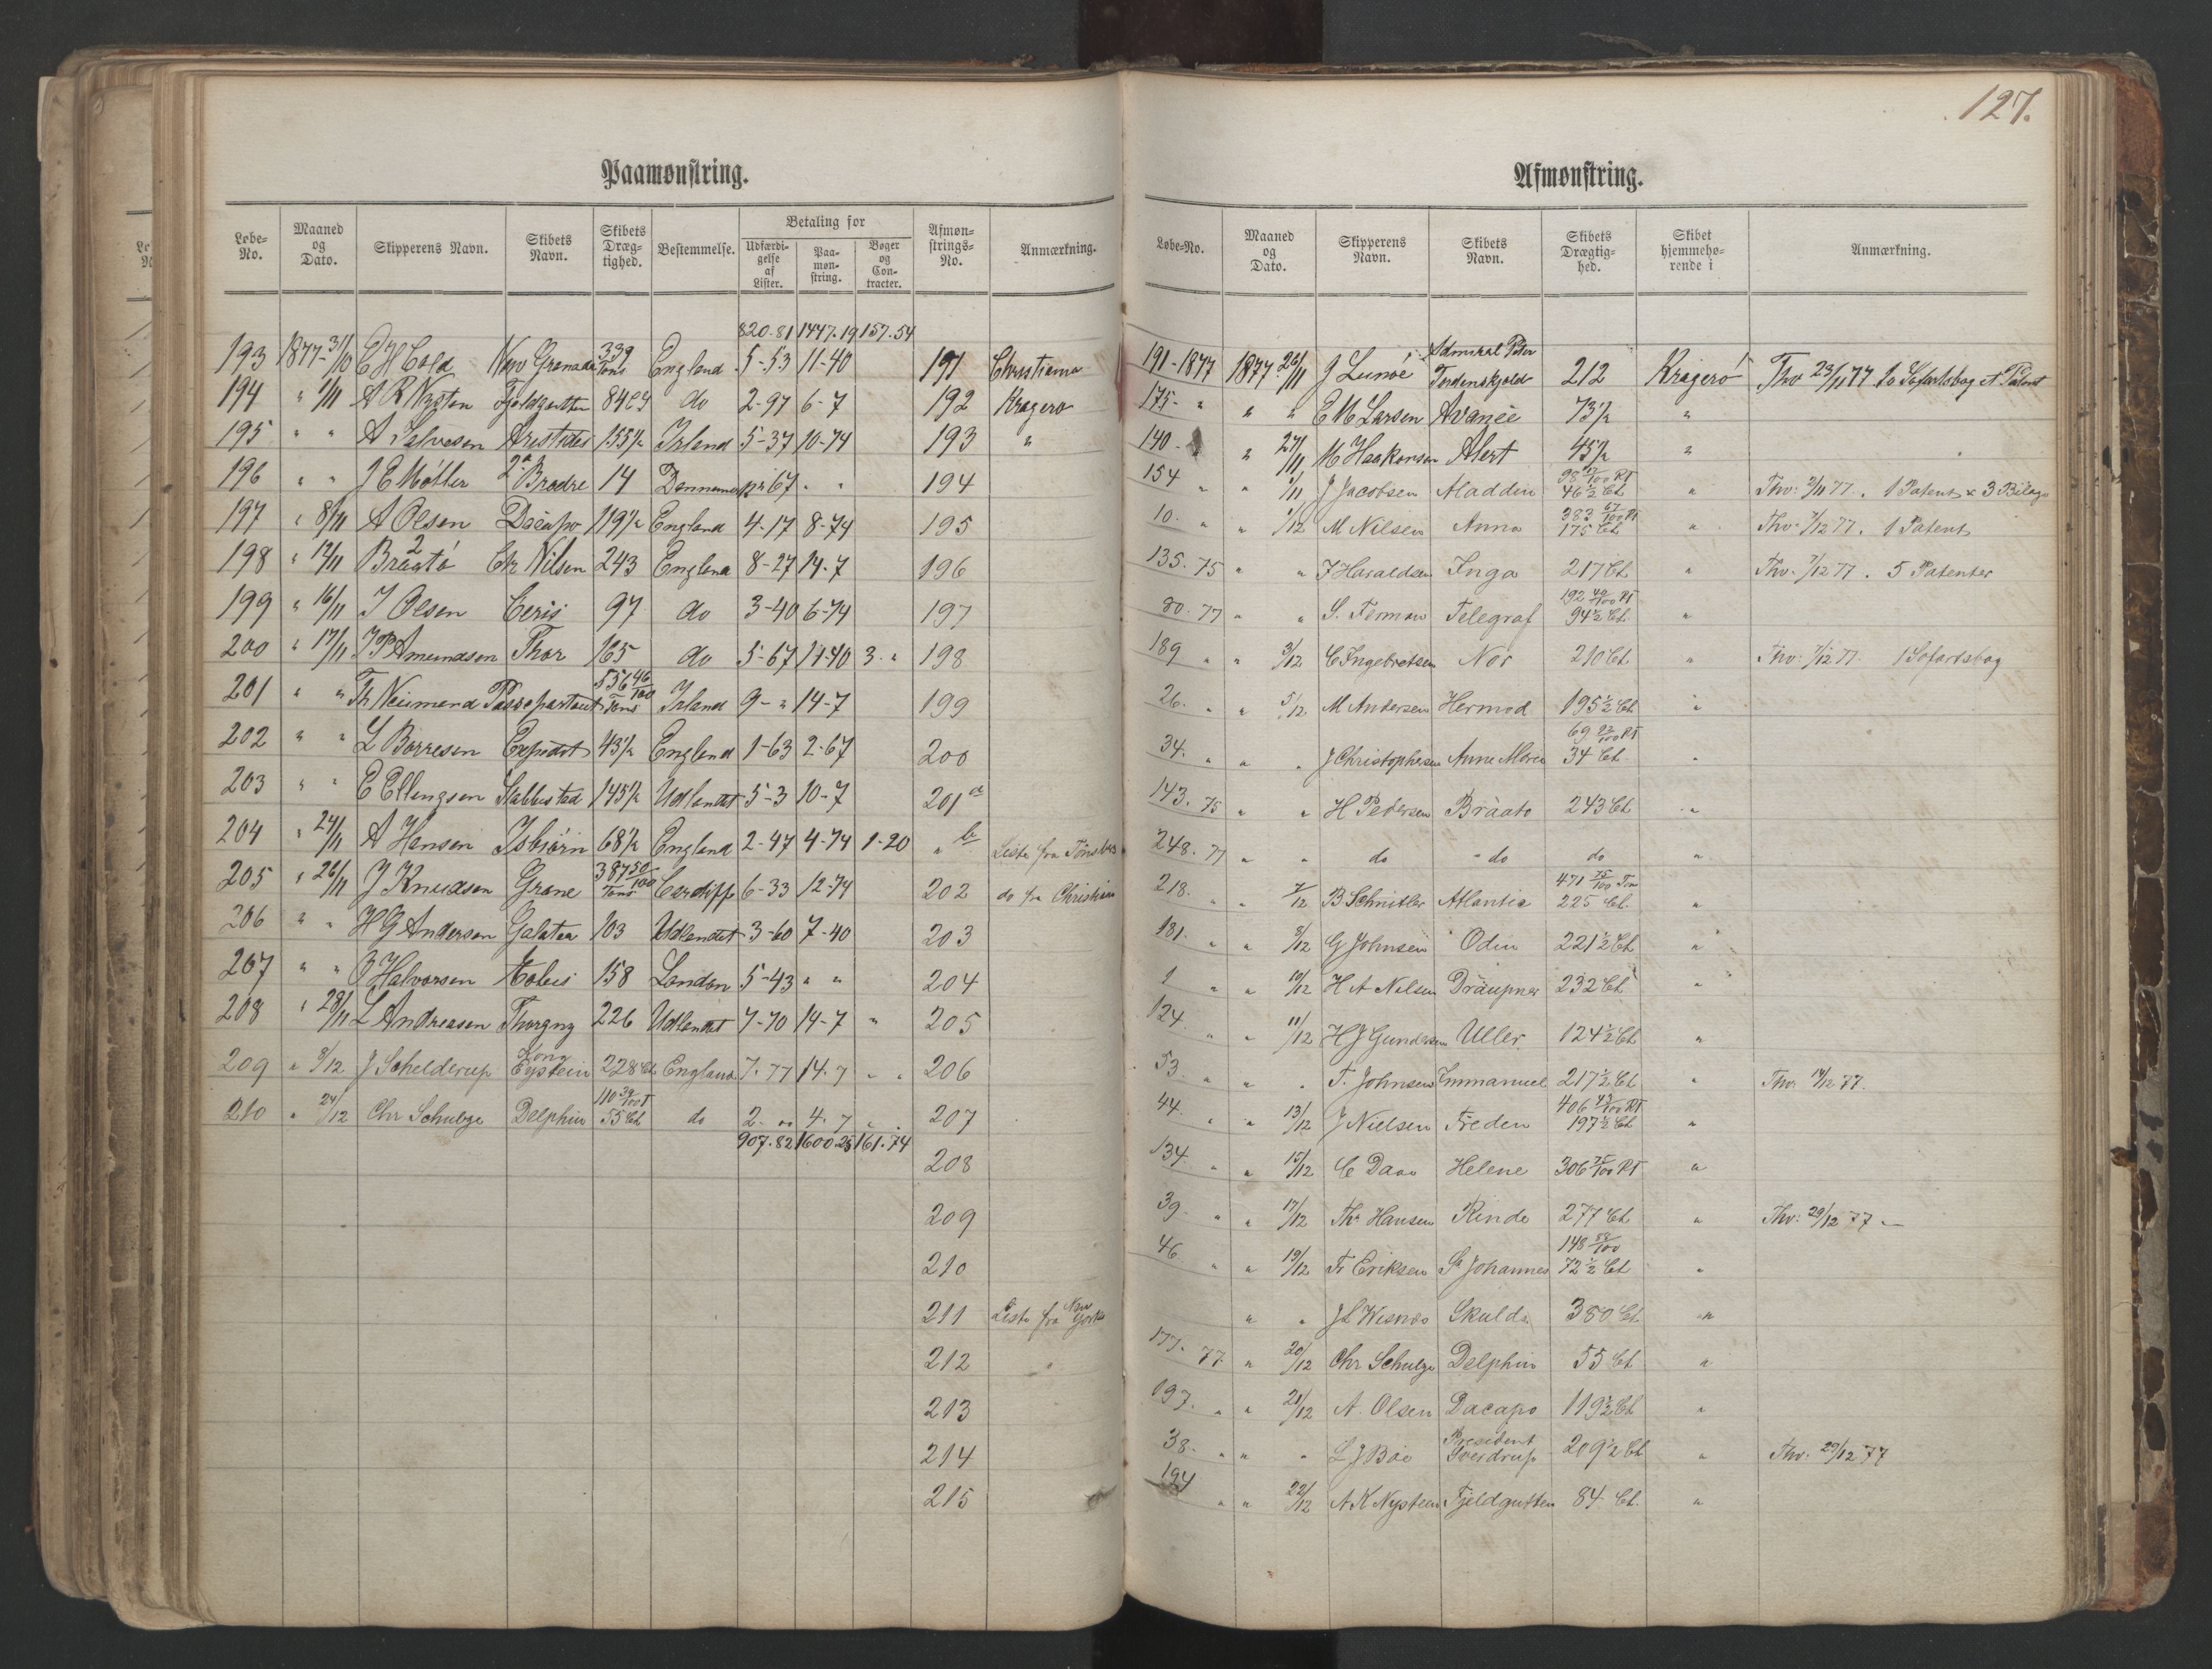 127.
Paamønstring.
Løbe-No. Maaned og Dato. Skipperens Navn. Skibets Navn. Skibets Dræg-tighed. Bestemmelse. Betaling for Udfærdi-gelse af Lister. Paa-møn-string. Bøger og Con-tracter. Afmøn-strings-No. Anmærkning.
820.81 1447.19 157.54
193 1877-31/10 C H Cold New Granada 339 Tons England 5-53 11-40 191 Christiania
194 " 1/11 A R Nysten Fjeldgutten 84 C do 2-97 6-7 192 Kragerø
195 " " A Salvesen Aristides 155½ Irland 5-37 10-74 193 "
196 " " J E Møller 2de Brødre 14 67 " " 194
197 " 8/11 A Olsen Dacapo 119½ England 4-17 8-74 195
198 " 12/11 Braatø Chr Nilsen 243 England 8-27 14-7 196
199 " 16/11 J Olsen Ceris 97 do 3-40 6-74 197
200 " 17/11 J P Amundsen Thor 165 do 5-67 11-40 3 " 198
201 " " Th Neumand Passepartout 556 46/100 Tons Irland 9-" 14-7 199
202 " " L Borresen Expedit 43½ England 1-63 2-67 200
203 " " E Ellingsen Stabbestad 145½ Udlandet 5-3 10-7 201 a
204 " 24/11 A Hansen Isbjørn 68½ England 2-47 4-74 1-20 " b Liste fra Tönsberg
205 " 26/11 J Knudsen Grane 387 50/100 Tons Cardiff 6-33 12-74 202 do fra Christian
206 " " H G Andersen Galatea 103 Udlandet 3-60 7-40 203
207 " " O Halvorsen Æolus 158 London 5-43 " " 204
208 " 28/11 L Andreasen Thorgny 226 Udlandet 7-70 14-7 " 205
209 " 3/12 J Schelderup Kong Eystein 228 Cl England 7.77 14.7 " " 206
210 " 24/12 Chr Schulze Delphin 110 39/100 T 55 Cl do 2.00 4.7 " . 207
907.82 1600.25 161.74
208
209
210
211 Liste fra New York
212
213
214
215
Afmønstring.
Løbe-No. Maaned og Dato. Skipperens Navn. Skibets Navn. Skibets Drægtig-hed. Skibet hjemmehø-rende i Anmærkning.
191-1877 1877 26/11 J Lunöe Admiral Peter Tordenskjold 212 Kragerö Thv 23/11 77 1 Søfartsbog 1 Patent
175- " " " E M Larsen Avance 73½ "
140- " 27/11 M Haakonsen Alert 45½ "
154 " " J Jacobsen Aladdin 46½ Cl " 1 Patent x 3 Bilag
10. " " 1/12 M Nilsen Anna 383 67/100 RT 175 Cl " Thv. 7/12 77. 1 Patent
135. 75 " " F Haraldsen Inga 217 Cl " Thv. 7/12 77. 5 Patenter
80. 77 " " S. Ferman Telegraf 192 40/100 RT 94½ Cl "
189 " " 3/12 C Ingebretsen Nor 210 Cl " Thv. 7/12 77. 1 Søfartsbog
26. " " 5/12 M Andersen Hermod 195½ Cl "
34. " " " J Christophersen Anne Marie 69 RT 34 Cl "
143. 75 " " H Pedersen Braatø 243 Cl "
248. 77 " " do do do "
218. " " 7/12 B Schnitler Atlantic 471 75/100 Ton 225 Cl. "
181. " " 8/12 G Johnsen Odin 221½ Cl "
1 " " 10/12 H A Nilsen Dräupner 232 Cl "
124. " 11/12 H J Gundersen Uller 124½ Cl "
53. " " " T. Johnsen Immanuel 217½ Cl " Thv 14/12 77.
44. " " 13/12 J Nielsen Freden 406 43/100 RT 197½ Cl "
134. " " 15/12 C Daae Helene 306 75/100 RT "
39. " " 17/12 Ths Hansen Rinde 277 Cl " Thv: 29/12 77 —
46. " " 19/12 Fr Eriksen St Johannes 148 58/100 72½ Cl "
" " J L Wisnæs Skulda 380 Cl "
177. 77. " 20/12 Chr Schulze Delphin 55 Cl "
197. " " 21/12 A. Olsen Dacapo 119½ Cl "
38. " " " L J Böe President Sverdrup 209½ Cl " Thv: 29/12 77
194 " " 22/12 A K Nysteen Fjeldgutten 84 Cl. "